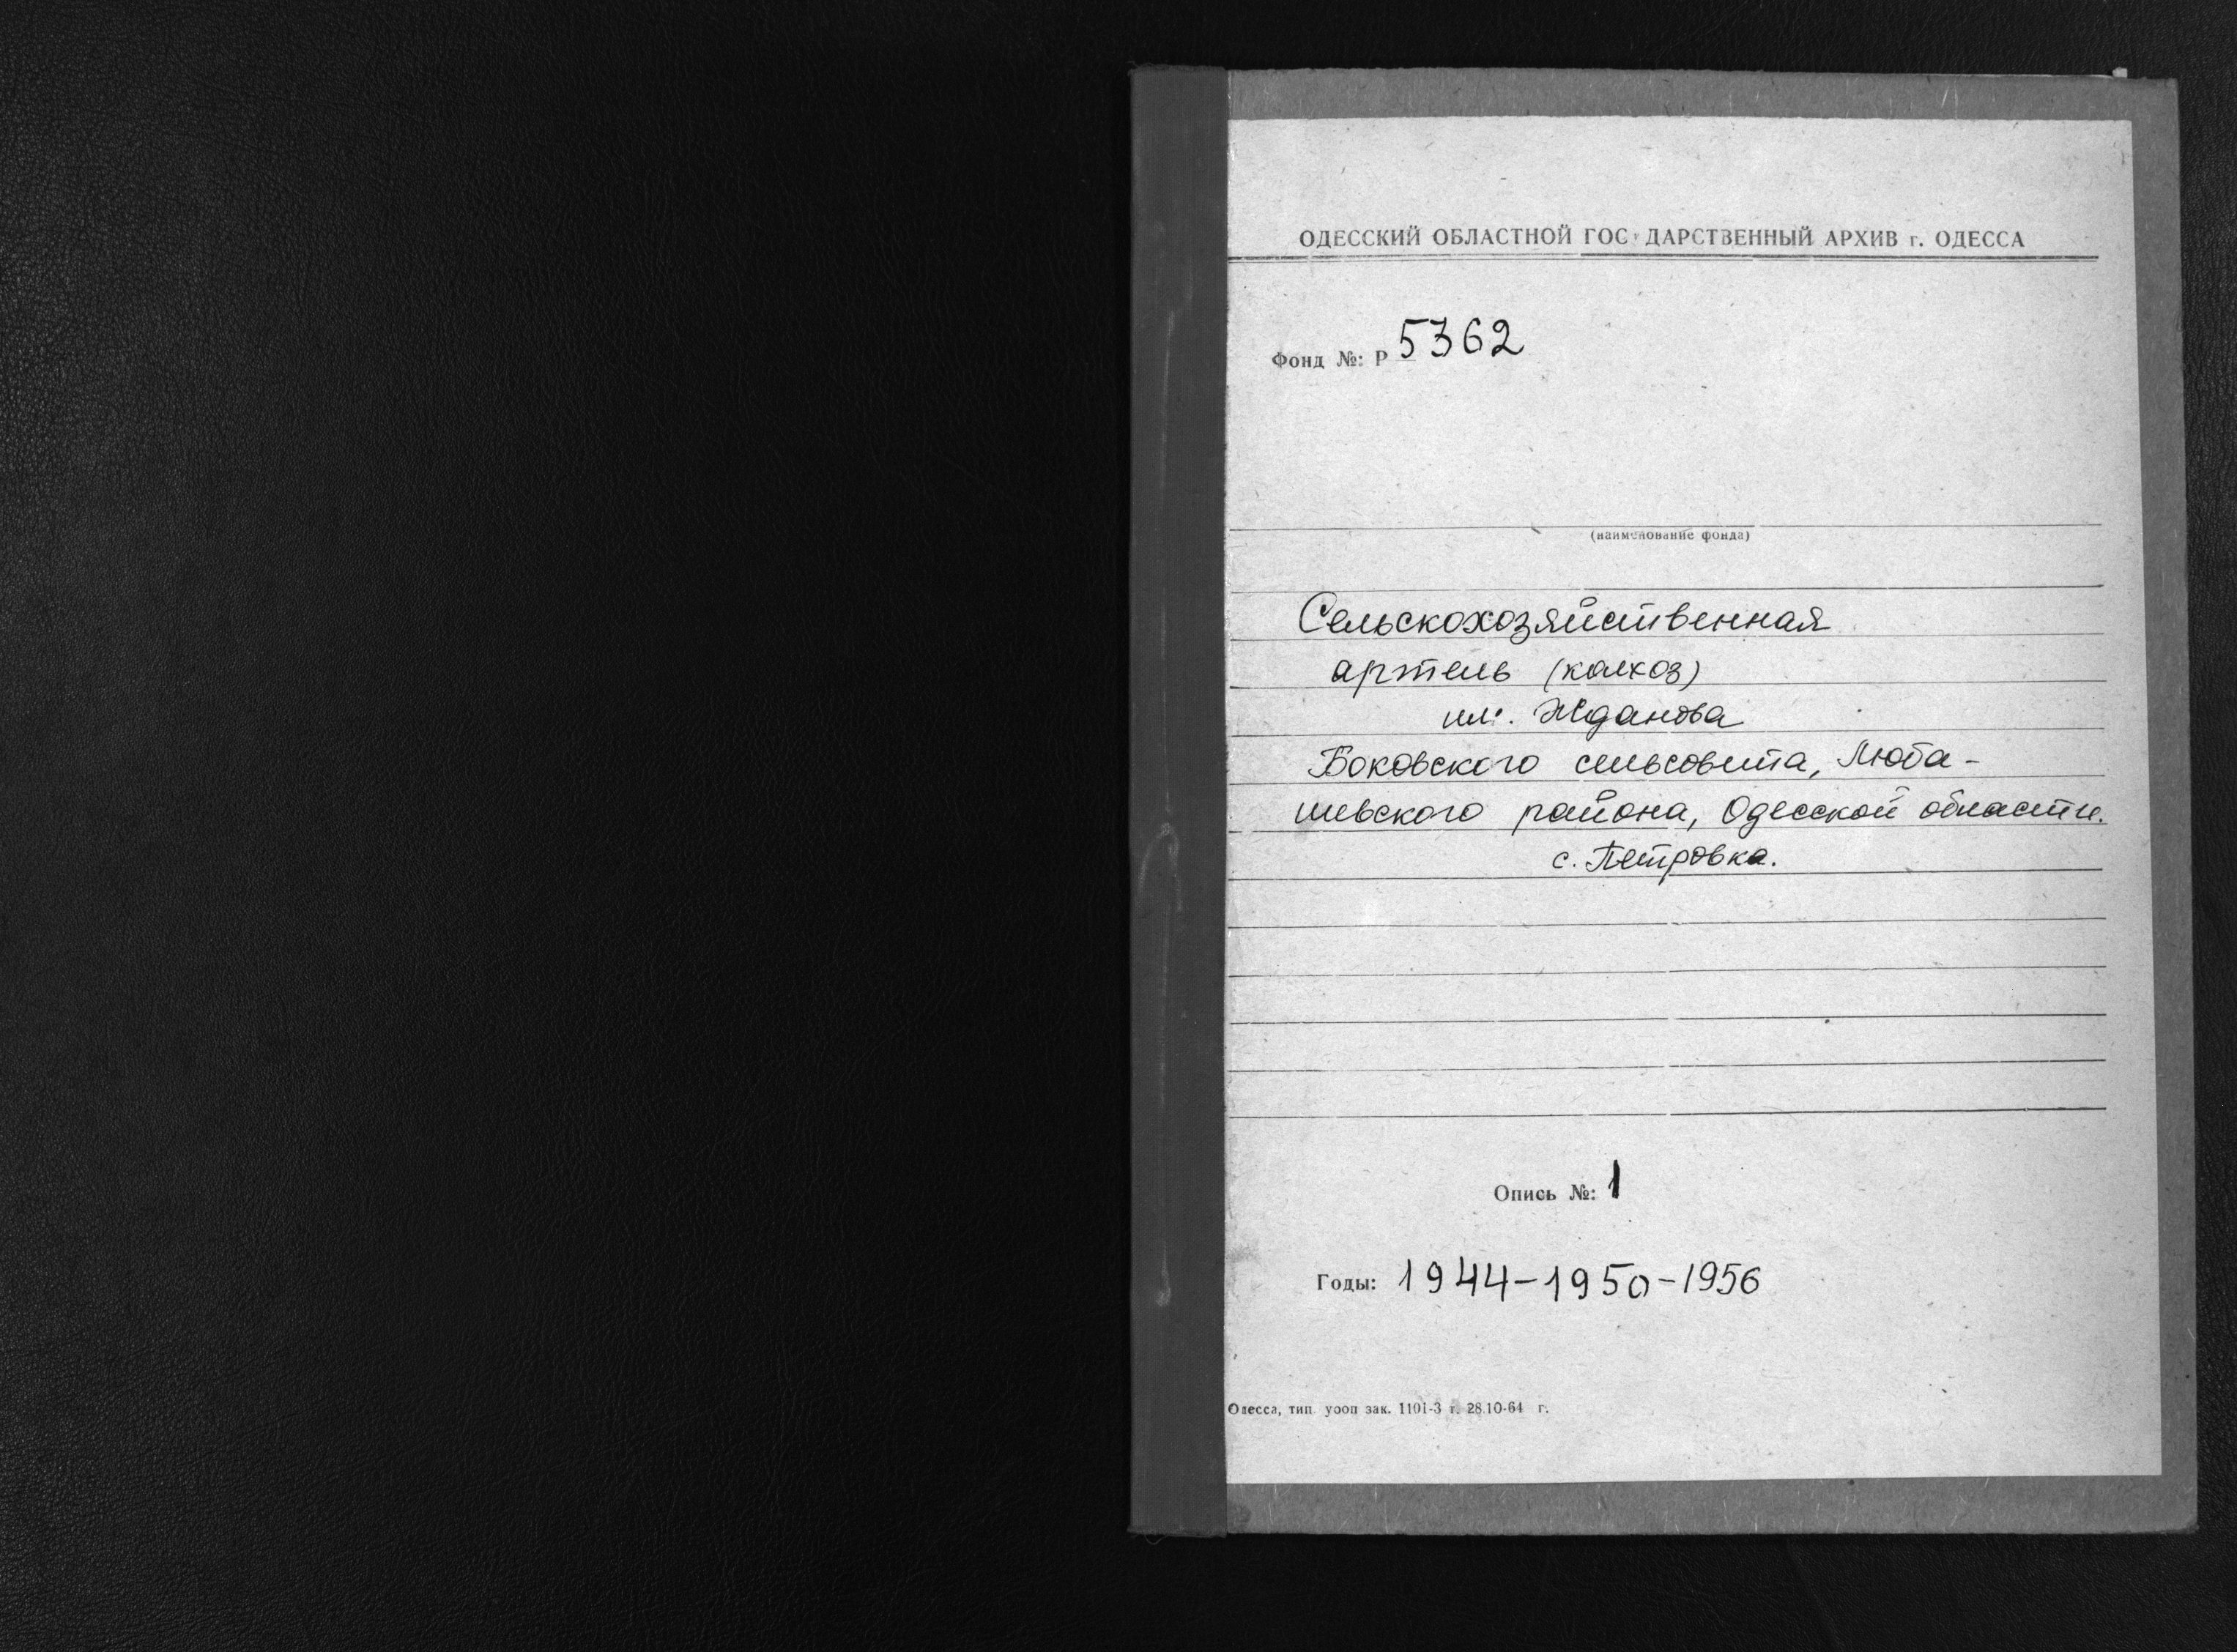 ОДЕССКИЙ ОБЛАСТНОЙ ГОСУДАРСТВЕННЫЙ АРХИВ г. ОДЕССА
Фонд №: Р 5362
(наименование фонда)
Сельскохозяйственная
артель (колхоз)
им. Жданова
Боковского сельсовета, Люба-
шевского района, Одесской области.
с. Петровка.
Опись №: 1
Годы: 1944-1950-1956
Одесса, тип. уооп зак. 1101-3 т. 28.10-64 г.